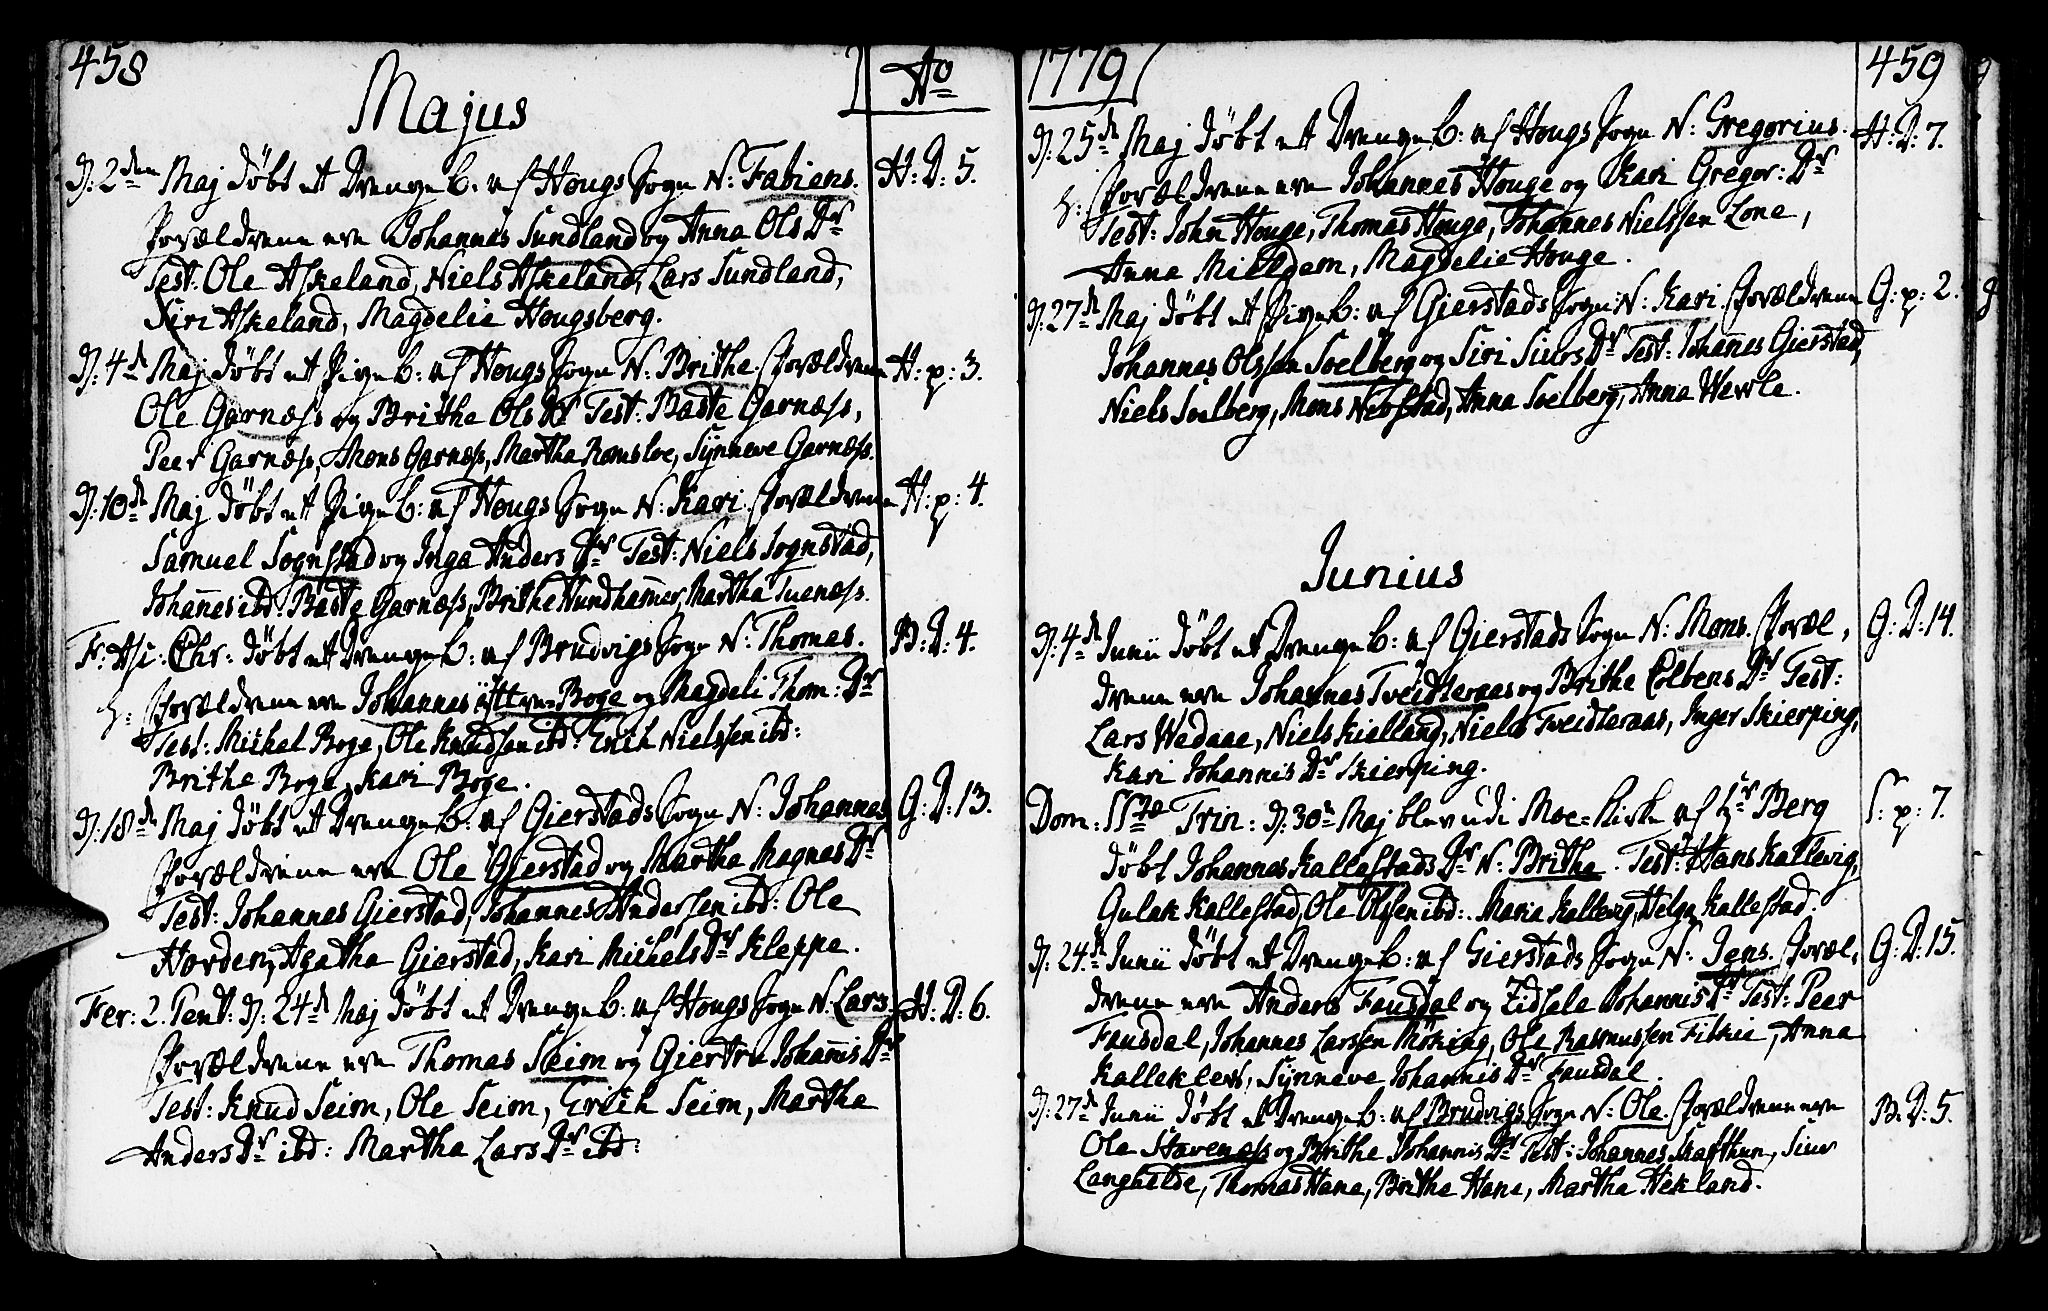 458
Majus
Ao
D: 2den Maj døbt et Drengeb: af Hougs Sogn N: Fabians. H: D: 5.
Forældrene ere Johannes Sundland og Anna Ols Dr
Test: Ole Askeland, Niels Askeland, Lars Sundland,
Siri Askeland, Magdelie Hougsberg.
D: 4de Maj døbt et Pigeb: af Hougs Sogn N: Brithe Forældrene H: p: 3.
Ole Garnæss og Brithe Ols Dr Test: Baste Garnæss,
Peer Garnæss, Mons Garnæss, Martha Romsloe, Synneve Garnæss.
D: 10de Maj døbt et Pigeb: af Hougs Sogn N: Kari Forældrene H: p: 4.
Samuel Sognstad og Inga Anders Dr Test: Niels Sognstad,
Johannes ibd: Baste Garnæss, Brithe Hundhammer, Martha Tuenæss.
F: Asc: Chr: døbt et Drengeb: af Brudvigs Sogn N: Thomas. B: D: 4.
h: Forældrene ere Johannes Yttre-Boge og Magdeli Thom: Dr
Test: Michel Boge, Ole Knudsen ibd: Erich Nielssen ibd:
Brithe Boge, Kari Boge.
D: 18de Maj døbt et Drengeb: af Gierstads Sogn N: Johannes G: D: 13.
Forældrene ere Ole Gierstad og Martha Magnes Dr
Test: Johannes Gierstad, Johannes Anderssen ibd: Ole
Horden, Agatha Gierstad, Kari Michels Dr Kleppe.
Fer: 2. Pent: D: 24de Maj døbt et Drengeb: af Hougs Sogn N: Lars H: D: 6.
Forældrene ere Thomas Seim og Giertru Johannis Dr
Test: Knud Seim, Ole Seim, Erich Seim, Martha
Anders Dr ibd: Martha Lars Dr ibd:
1779
459
D: 25de Maj døbt et Drengeb: af Hougs Sogn N: Gregorius. H: D: 7.
h: Forældrene ere Johannes Houge og Kari Gregor: Dr
Test: John Houge, Thomas Houge, Johannes Nielssen Lone,
Anna Mieldem, Magdelie Houge.
D: 27de Maj døbt et Pigeb: af Gierstads Sogn N: Kari Forældrene G: p: 2.
Johannes Olssen Soelberg og Siri Siurs Dr Test: Johannes Gierstad,
Niels Soelberg, Mons Nebstad, Anna Soelberg, Anna Wevle.
Junius
D: 4de Junii døbt et Drengeb: af Gierstads Sogn N: Mons. Foræl, G: D: 14.
drene ere Johannes Tveidteraas og Brithe Colbens Dr Test:
Lars Wedaae, Niels Kielland, Niels Tveidteraas, Inger Skierping,
Kari Johannis Dr Skierping.
Dom: SStæ Trin: D: 30de Maj blev udi Moe-Kirke af Hr Berg S: p: 7.
døbt Johannes Kallestads Dr N: Brithe. Test: Hans Kallevig,
Gulak Kallestad, Ole Olssen ibd: Maria Kallevig, Helga Kallestad.
D: 24de Junii døbt et Drengeb: af Gierstads Sogn N: Jens. Foræl, G: D: 15.
drene ere Anders Fausdal og Zidsele Johannis Dr Test: Peer
Fausdal, Johannes Larssen Møking, Ole Rasmussen Fiskie, Anna
Kalleklev, Synneve Johannis Dr Fausdal.
D: 27de Junii døbt et Drengeb: af Brudvigs Sogn N: Ole. Forældrene ere B: D: 5.
Ole Stavenæss og Brithe Johannis Dr Test: Johannes Skafthun, Siur
Langhelde, Thomas Hane, Brithe Hane, Martha Hekland.